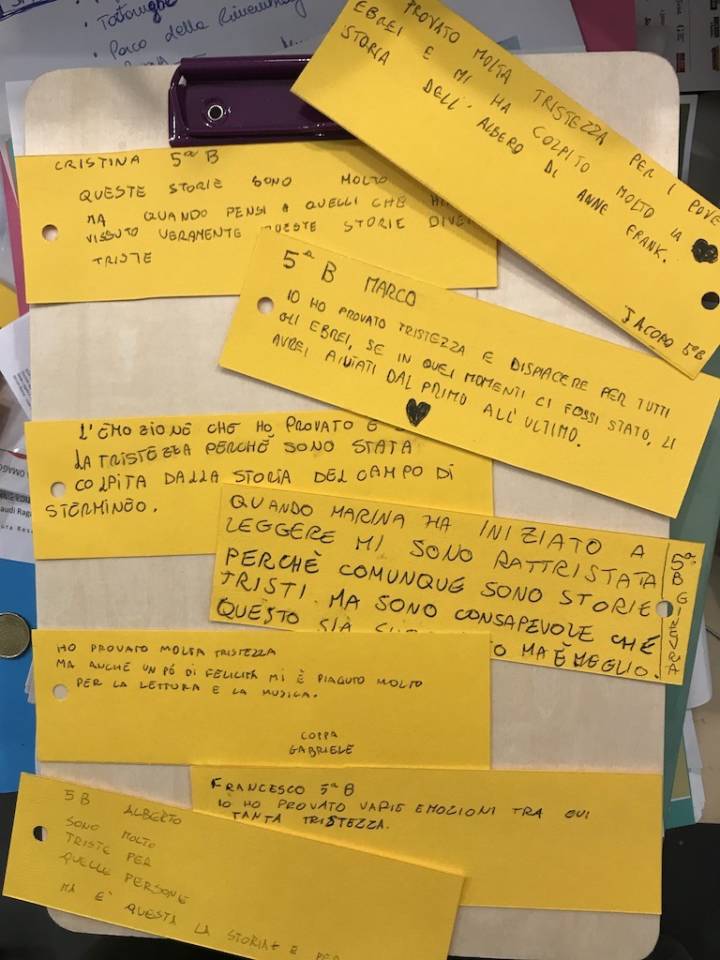 Tartarughe
Parco della Rimembranza
PROVATO MOLTA TRISTEZZA PER I POVE
EBREI E MI HA COLPITO MOLTO LA
STORIA DELL'ALBERO DI ANNE FRANK.
JACOPO 5ªB
CRISTINA 5ª B
QUESTE STORIE SONO MOLTO
MA QUANDO PENSI A QUELLI CHE
VISSUTO VERAMENTE QUESTE STORIE DIVE
TRISTE
5ª B MARCO
IO HO PROVATO TRISTEZZA E DISPIACERE PER TUTTI
GLI EBREI, SE IN QUEI MOMENTI CI FOSSI STATO, LI
AVREI AIUTATI DAL PRIMO ALL'ULTIMO.
L'EMOZIONE CHE HO PROVATO È
LA TRISTEZZA PERCHÈ SONO STATA
COLPITA DALLA STORIA DEL CAMPO DI
STERMINEO.
QUANDO MARINA HA INIZIATO A
LEGGERE MI SONO RATTRISTATA
PERCHÈ COMUNQUE SONO STORIE
TRISTI. MA SONO CONSAPEVOLE CHE
QUESTO SIA MA È MEGLIO.
5ª B GINEVRA
HO PROVATO MOLTA TRISTEZZA
MA ANCHE UN PÓ DI FELICITÀ MI È PIAQUTO MOLTO
PER LA LETTURA E LA MUSICA.
COPPA
GABRIELE
FRANCESCO 5ª B
IO HO PROVATO VARIE EMOZIONI TRA QUI
TANTA TRISTEZZA.
5 B ALBERTO
SONO MOLTO
TRISTE PER
QUELLE PERSONE
MA E' QUESTA LA STORIA E PER